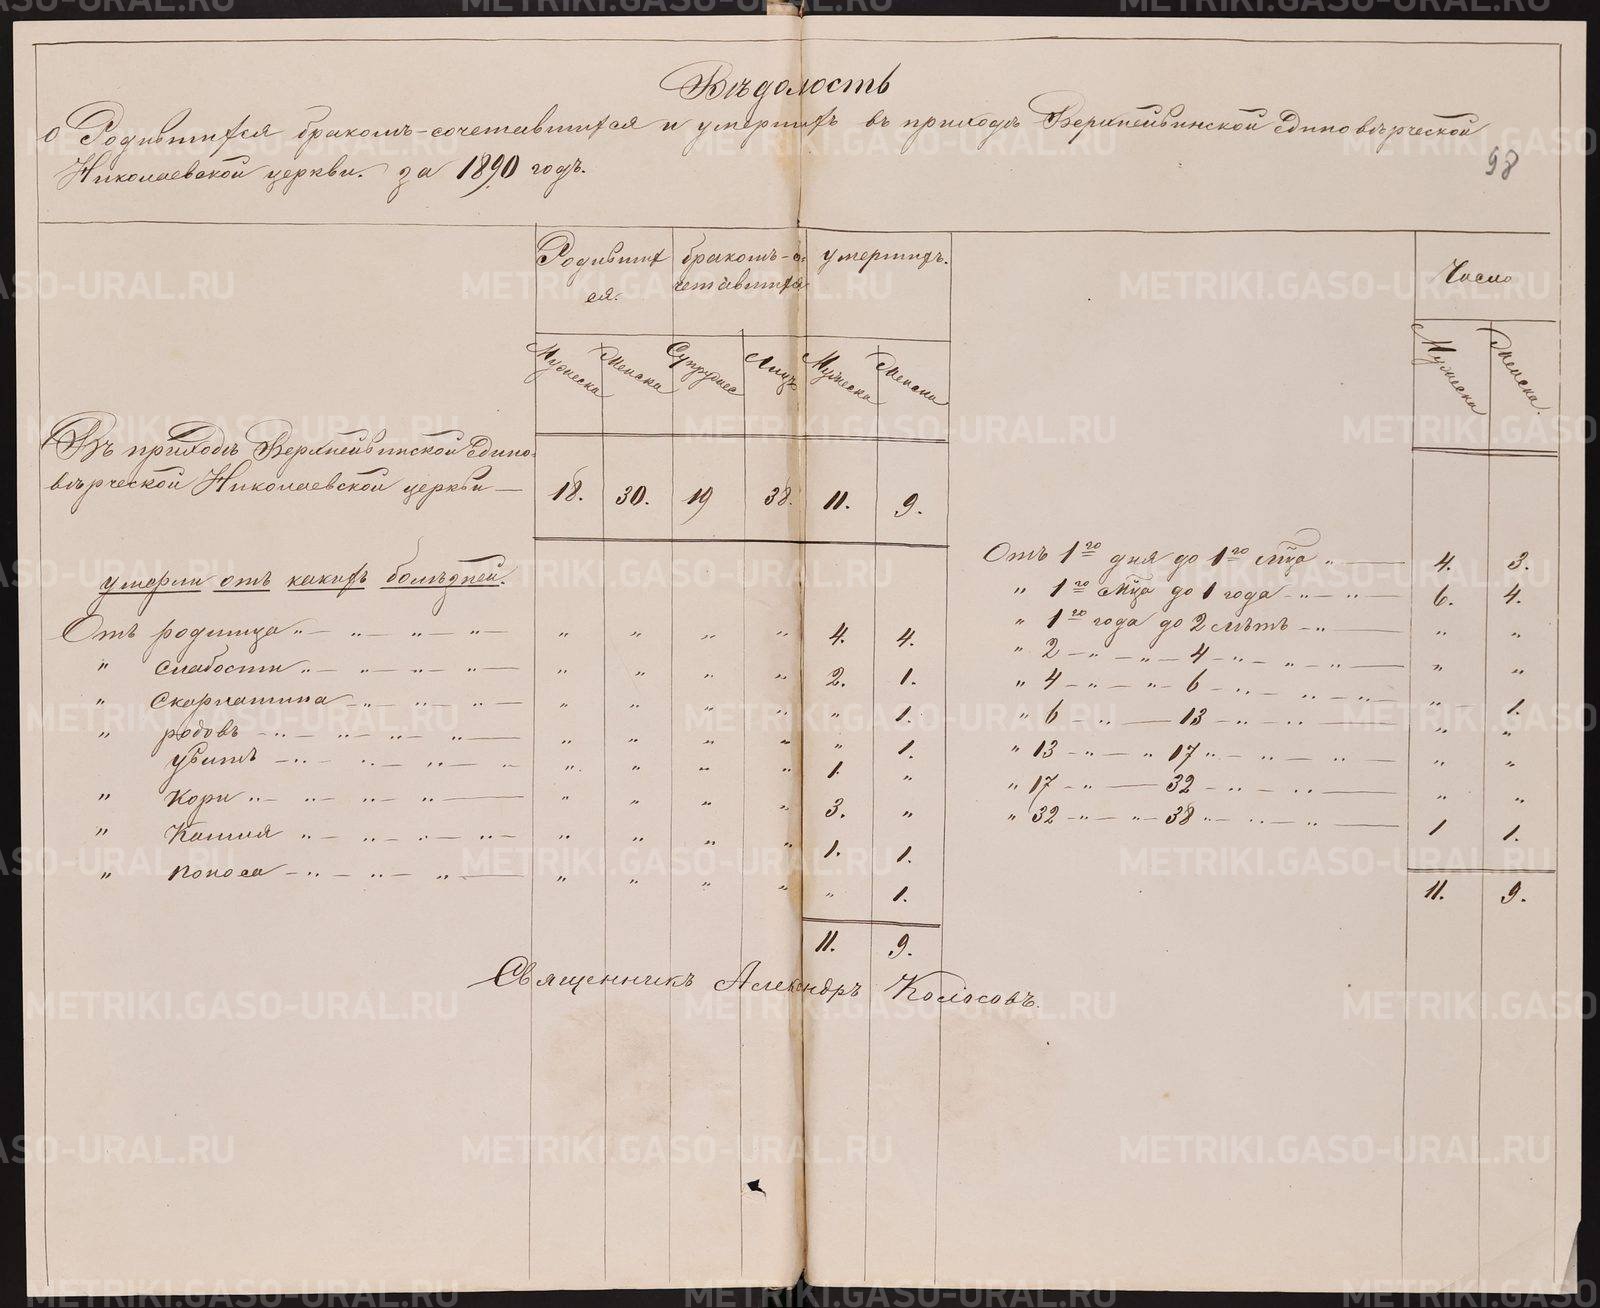 Вѣдомость
о Родившихся бракомъ-сочетавшихся и умершихъ въ приходѣ Верхнейвинской Единовѣрческой
Николаевской церкви. за 1890 годъ.
98
Родивших
ся.
бракомъ-со
четавшихся
умершихъ.
Число
Мужеска
Женска
Супружес
Лицъ
Мужеска
Женска
Мужеска
Женска.
Въ приходѣ Верхнейвинской Едино-
вѣрческой Николаевской церкви — 18. 30. 19 38. 11. 9.
умерли отъ какихъ болѣзней.
Отъ родимца „ — „ — „ — „ — „ „ „ „ 4. 4.
„ слабости „ — „ — „ — „ — „ „ „ „ 2. 1.
„ Скарлатина — „ — „ — „ — „ „ „ „ „ 1.
„ родовъ — „ — „ — „ — „ — „ „ „ „ „ 1.
убитъ — „ — „ — „ — „ „ „ „ „ 1. „
„ Кори „ — „ — „ — „ — „ „ „ „ 3. „
„ Кашля „ — „ — „ — „ — „ „ „ „ 1. 1.
„ поноса — „ — „ — „ — „ „ „ „ „ 1.
11. 9.
Отъ 1го дня до 1го мца „ — 4. 3.
„ 1го мца до 1 года — „ — „ — 6. 4.
„ 1го года до 2 лѣтъ — „ — „ „
„ 2 — „ — „ — 4 — „ — „ — „ — „ „
„ 4 — „ — „ — 6 — „ — „ — „ „ 1.
„ 6 — „ — 13 — „ — „ — „ „
„ 13 — „ — „ 17 „ — „ — „ — „ „
„ 17 — „ — 32 — „ — „ — „ „
„ 32 — „ — „ — 38 „ — „ — „ — 1 1.
11. 9.
Священникъ Александръ Колосовъ.
METRIKI.GASO-URAL.RU